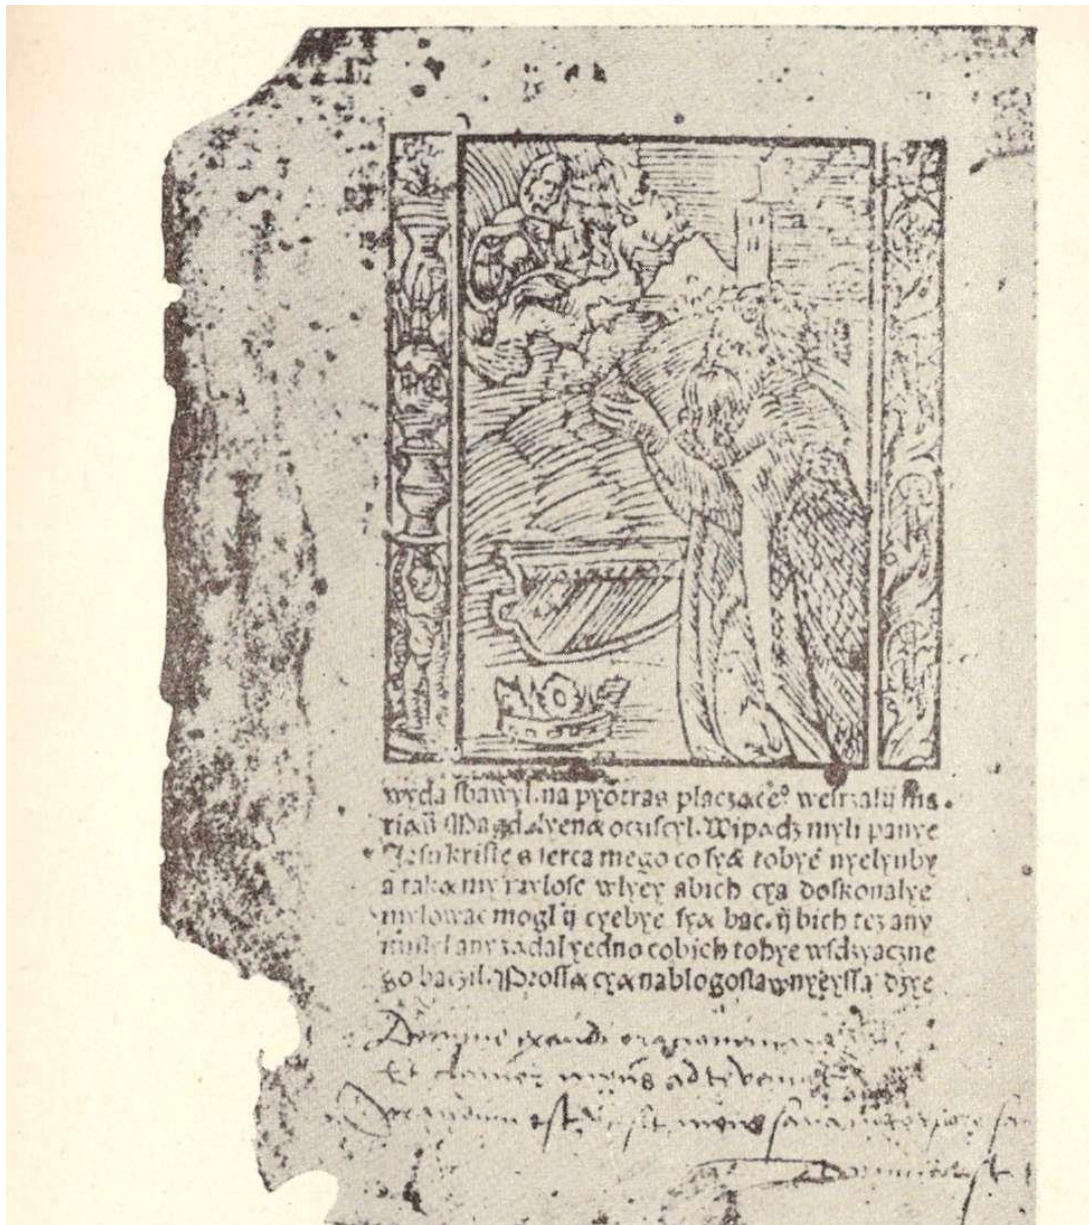 wyda sbawyl. na pyotras placzøcē⁹ wesrzalÿ ma
riaÿ Magdalyenø ocziscyl. Wipødz myli panye
Jesu kriste s serca mego co syø tobye nyelyuby
a takø my raylosc wlyey abich cyø doskonalye
mylowac mogl ÿ cyebye syø bac. ÿ bich tez any
myslyl any zødal yedno cobich tobye wsdzyaczne
go baczil. Prossø cyø nablogoslawnyeyssø dzye
Domine exaudi orationem meam
Et clamor meus ad te veniat
Orandum est ut sit mens sana in corpore